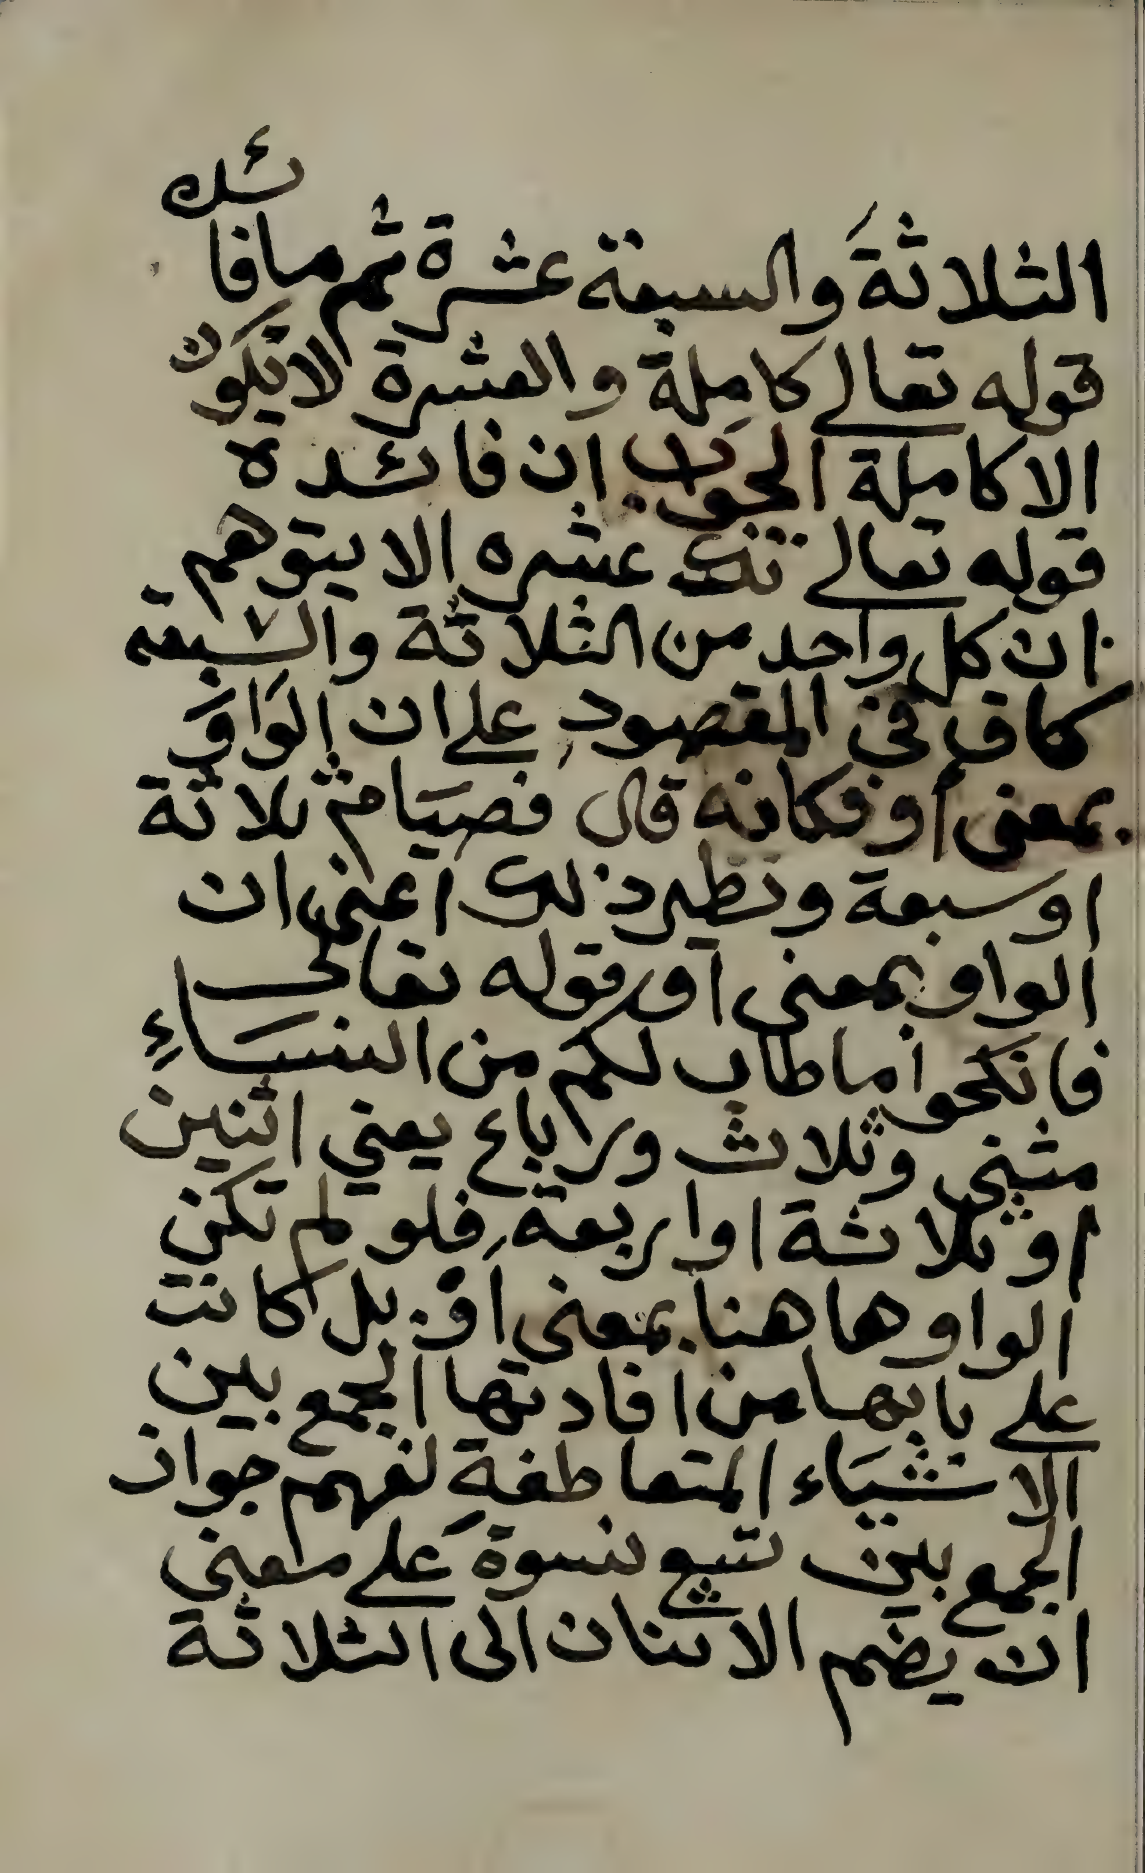 الثلاثةَ والسبعة عشرة ثم مافائدة
قوله تعالى كامِلة والعشرة لا تكون
الا كاملة الجواب ان فائدة
قوله تعالى تلك عشره الا يتوهم
ان كل واحد من الثلاثة والسبعة
كاف في المقصود على ان الوَاوَ
بمعنى أو فكانه قال فصيَام ثلاثة
اوسبعة ونظير ذلك اعني ان
الواو بمعنى أو قوله تعالى
فانكحوا ما طاب لكم من النسَاءِ
مثنى وثلاث ورباع يعني اثنين
او ثلاثة او اربعة فلو لم تكن
الواو هاهنا بمعنى اَوْ بل كانت
على بابها من افادتها الجمع بين
الاشيَاء المتعاطفةِ لفهم جواز
الجمع بين تسع نسوة على معنى
ان يضم الاثنان الى الثلاثة